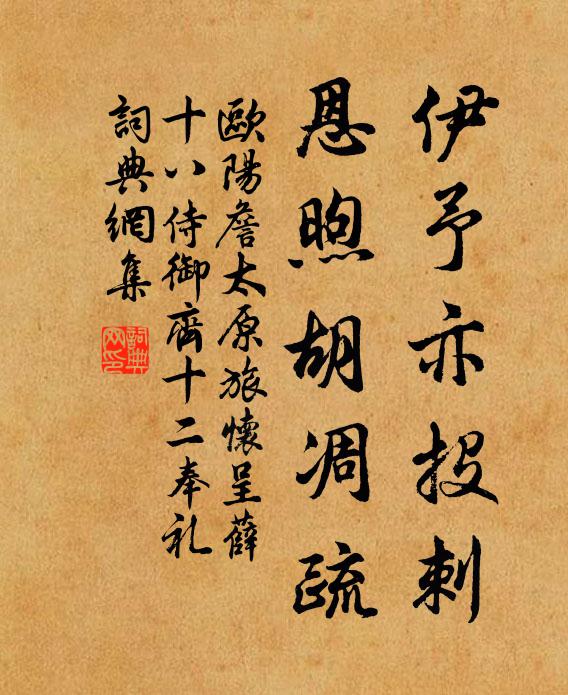 伊予亦投刺
恩煦胡凋疏
歐陽詹太原旅懷呈薛
十八侍御齊十二奉礼
詞典網集
詞典网印